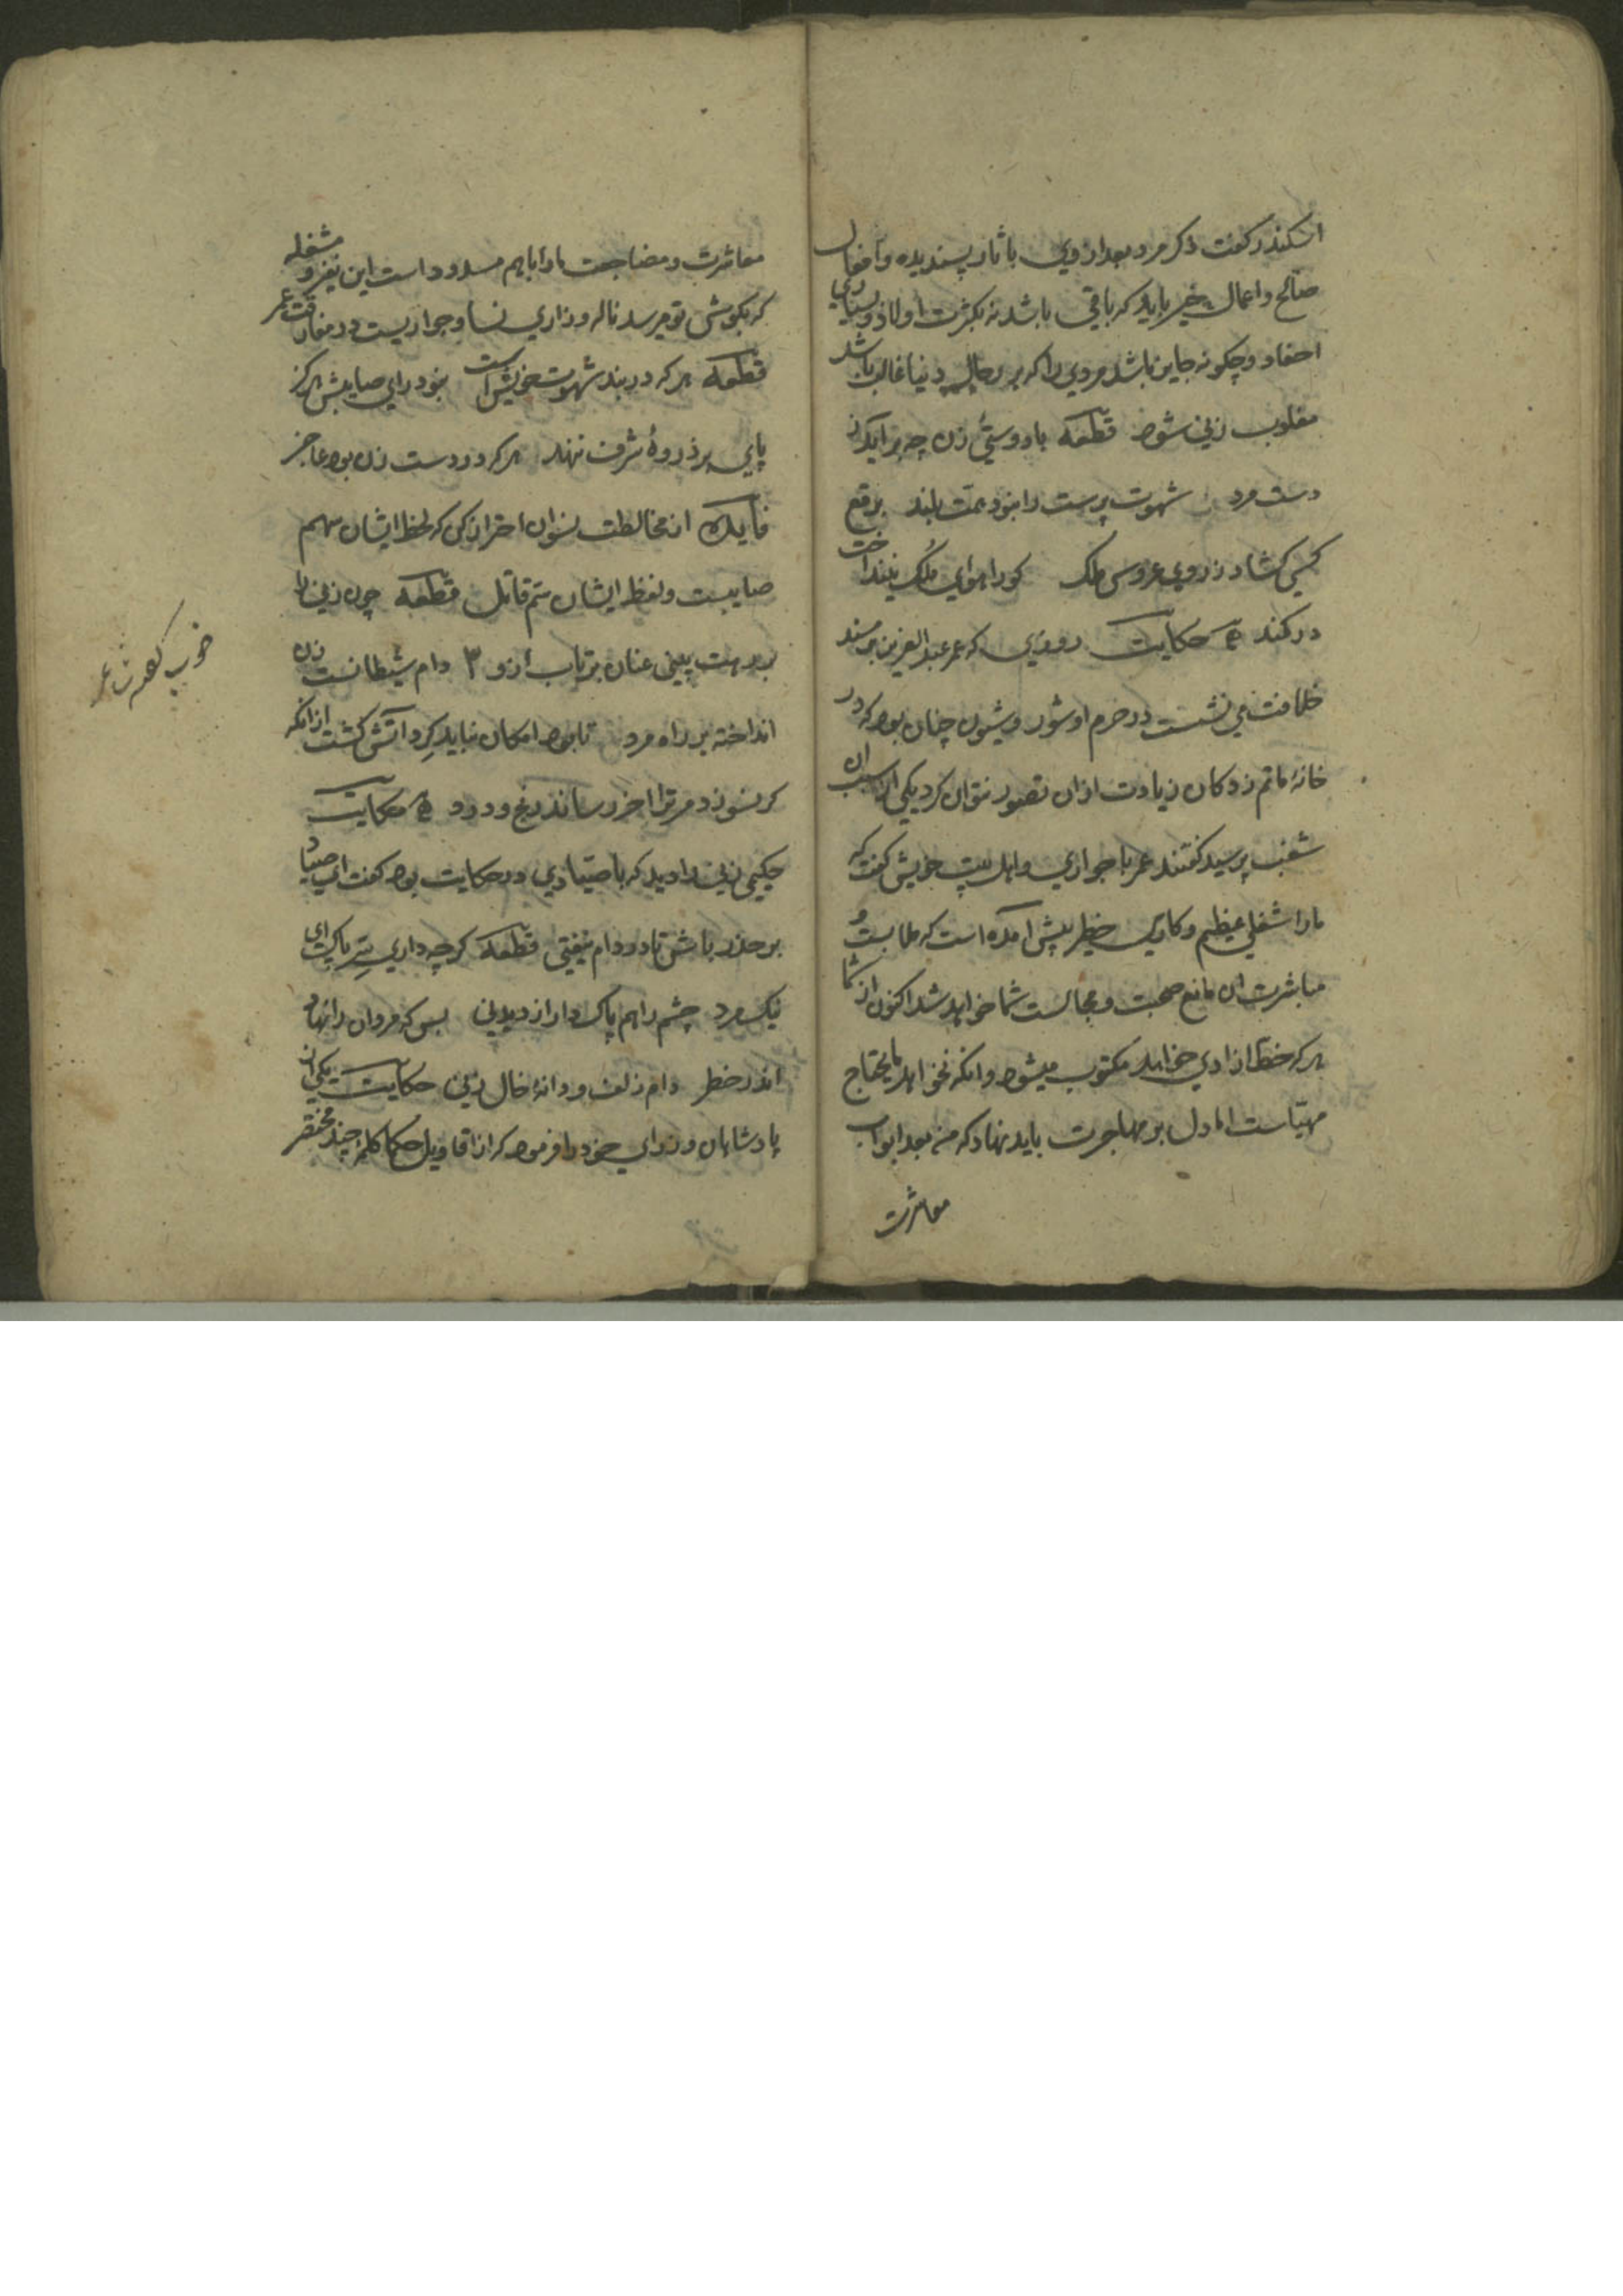 اسکندر کفت ذکر مرد بعد از وی باثار پسندیده و افعال
صالح و اعمال خیر باید که باقی باشد نه بکثرت اولاد و بسیاری
احفاد و چکونه جایز باشد مردی را که بر رجال دنیا غالب باشد
مغلوب زنی شود قطعه با دوستیٔ زن چه برآید ز
دست مرد شهوت پرست را نبود همت بلند برقع
کسی کشاد ز روی عروس ملک کو را هوای ملک نینداخت
در کند حکایت روزی که عمر عبدالعزیز بر مسند
خلافت می نشست در حرم او شور و شیون چنان بود که در
خانهٔ ماتم زدکان زیادت ازان تصور نتوان کرد یکی از سبب ان
شغب پرسید کفتند عمر با جواری و اهل بیت خویش کفت که
مارا شغلی عظیم و کاری خطیر پیش آمده است که ملابست و
مباشرت ان مانع صحبت و مجالست شما خواهد شد اکنون از شما
هر که خط ازادی خواهد مکتوب میشود و انکه نخواهد مایحتاج
مهیاست اما دل بر مهاجرت باید نهاد که منبعد ابواب
معاشرت
معاشرت و مضاجعت مارا باهم مسدود است این نفیر و مشغله
که بکوش تو میرسد ناله و زاری نسا و جواریست در مفارقت عمر
قطعه هر که در بند شهوت خویش است نبود رای صایبش هرکز
پای بر ذروهٔ شرف ننهد هر که در دست زن بود عاجز
فایده از مخالطت نسوان احتراز کن که لحظ ایشان سهم
صایبست و لفظ ایشان سم قاتل قطعه چون زنی را
بر رهت بینی عنان برتاب ازو ۳ دام شیطانست زن
انداخته بر راه مرد تا بود امکان نباید کرد آتش کشت ازانکه
کر نسوزد مر ترا اخر رساند رنج و دود حکایت
حکیمی زنی را دید که با صیادی در حکایت بود کفت ای صیاد
بر حذر باش تا در دام نیفتی قطعه کرچه داری سر پاکت ای
نیک مرد چشم را هم پاک دار از دیدنی بس که مردان را نهاد
اندر خطر دام زلف و دانهٔ خال زنی حکایت یکی از
پادشاهان وزرای خود را فرمود که از اقاویل حکما کلمهٔ چند مختصر
خوب کفته شاعر